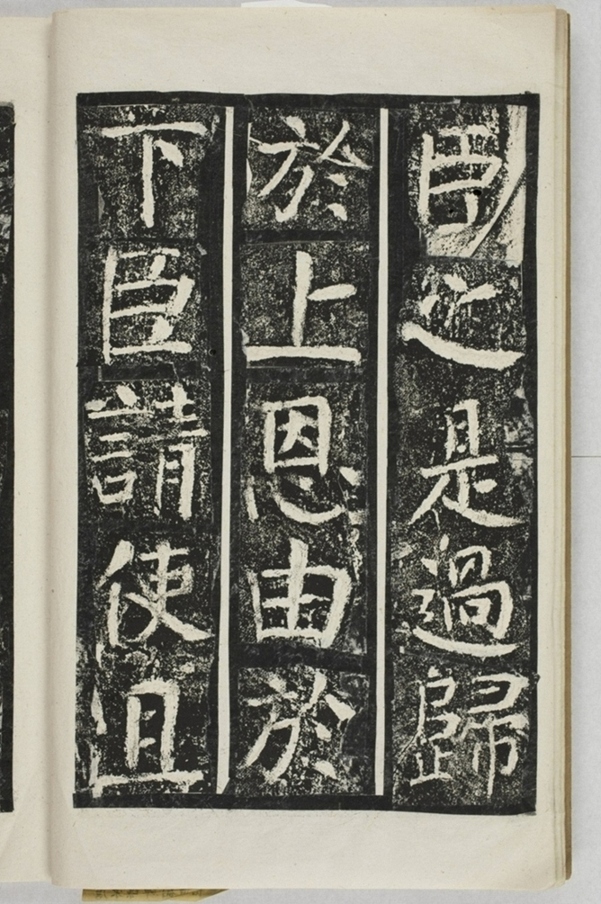 臣之是過歸
於上恩由於
下臣請使且